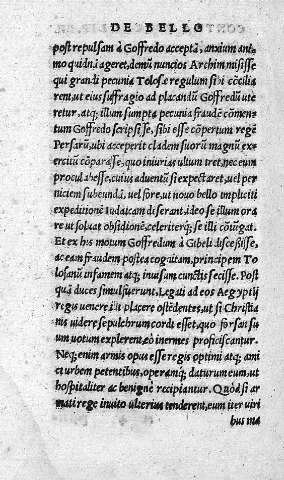 DE BELLO
post repulsam à Goffredo acceptã, anxium ani
mo quidnã ageret, demũ nuncios Archim misisse
qui grandi pecunia Tolosæ regulum sibi cõcilia
rent, ut eius suffragio ad placandũ Goffredũ ute
retur, atq; illum sumpta pecunia fraudẽ cõmen
tum Goffredo scripsisse, sibi esse cõpertum regẽ
Persarũ, ubi acceperit cladem suorũ magnũ exer
citũ cõparasse, quo iniurias ultum iret, nec eum
procul abesse, cuius aduentũ si expectaret, uel per
niciem subeundã, uel fore, ut nouo bello impliciti
expeditionẽ Iudaicam diserant, ideo se illum ora
re ut soluat obsidionẽ, celeriterq; se illi cõiugat.
Et ex his motum Goffredum à Gibeli discessisse,
ac eam fraudem postea cognitam, principem To
losanũ infamem atq; inuisum cunctis fecisse. Post
quã duces simul fuerunt, Legati ad eos Aegyptij
regis uenere, illi placere ostẽdentes, ut si Christia
nis uidere sepulchrum cordi esset, quo forsan su
um uotum explerent, eò inermes proficiscantur.
Neq; enim armis opus esse regis optimi atq; ami
ci urbem petentibus, operamq; daturum eum, ut
hospitaliter ac benignè recipiantur. Quòd si ar
mati rege inuito ulterius tenderent, eum iter uiri
bus ma